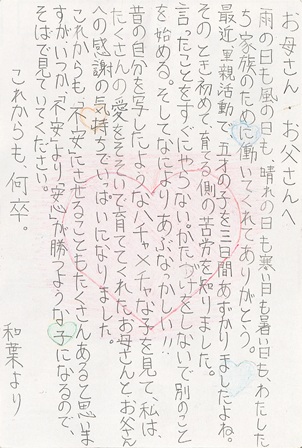 お母さん・お父さんへ
雨の日も風の日も晴れの日も寒い日も暑い日も、わたした
ち家族のために働いてくれ、ありがとう。
最近、里親活動で、五才の子を三日間あずかりましたよね。
そのとき初めて育てる側の苦労を知りました。
言ったことをすぐにやらない。かたづけをしないで別のこと
を始める。そしてなによりあぶなっかしい!!
昔の自分を写したようなハチャメチャな子を見て、私は、
たくさんの愛をそそいで育ててくれたお母さんとお父さん
への感謝の気持ちでいっぱいになりました。
これからも、不安にさせることもたくさんあると思いま
すがいつか、不安より「安心」が勝つような子になるので、
そばで見ていてください。
これからも、何卒。
和葉より